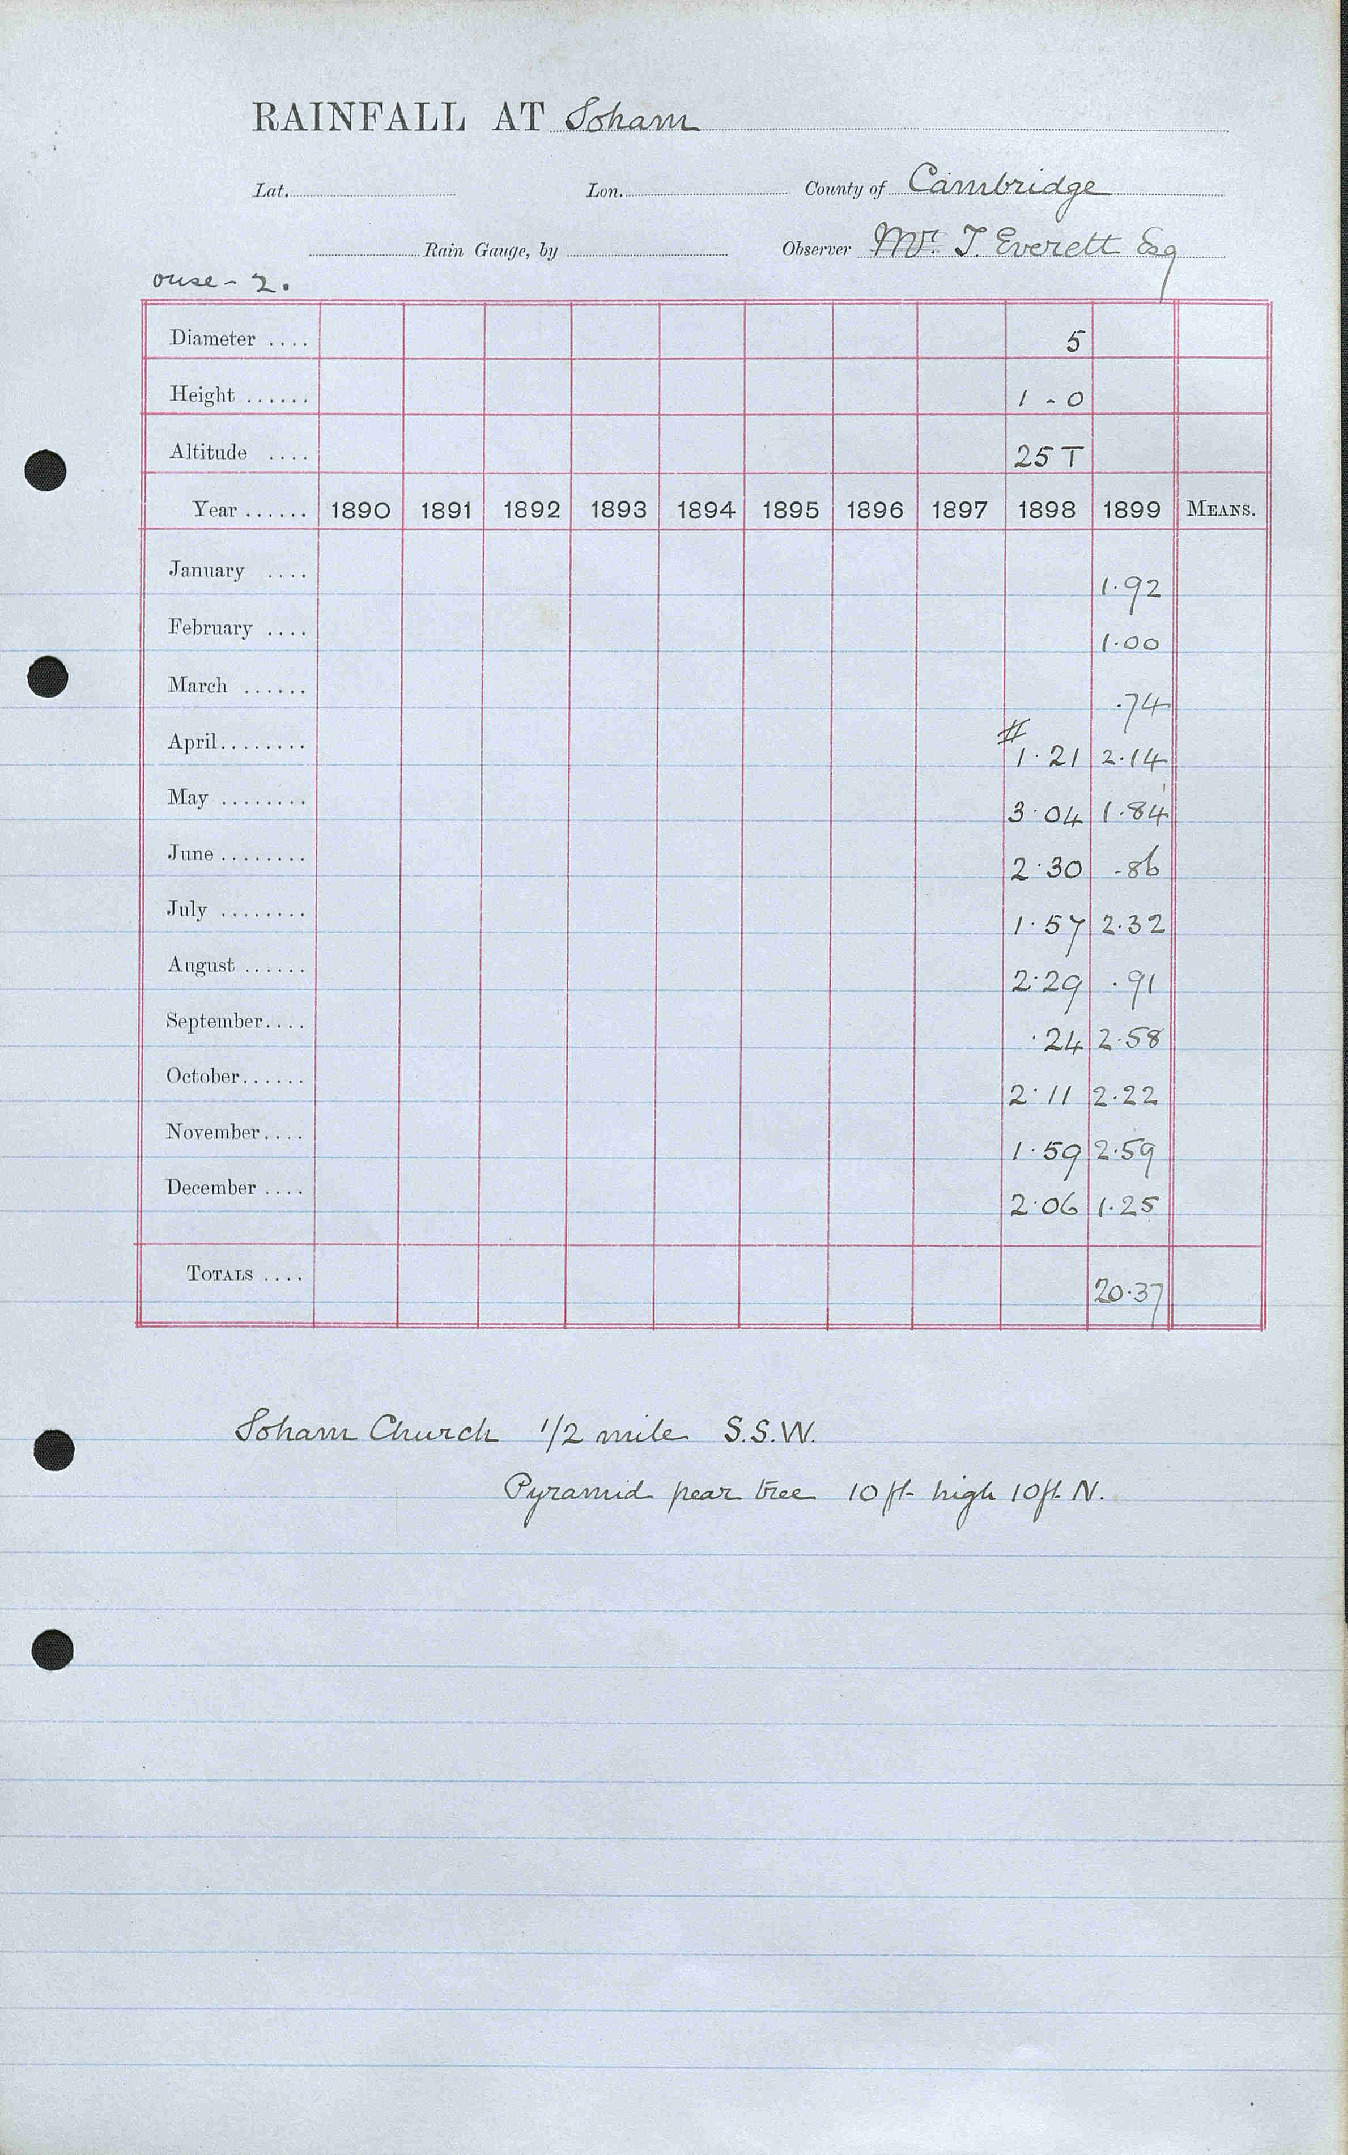 RAINFALL AT Soham
Lat. Lon. County of Cambridge
Rain Gauge, by Observer Mr. J. Everett Esq
ouse - 2.
Diameter .... 5
Height ...... 1 - 0
Altitude .... 25 T
Year ...... 1890 1891 1892 1893 1894 1895 1896 1897 1898 1899 MEANS.
January .... 1.92
February .... 1.00
March ...... .74
April ........ # 1.21 2.14
May ........ 3.04 1.84
June ........ 2.30 .86
July ........ 1.57 2.32
August ...... 2.29 .91
September .... .24 2.58
October ...... 2.11 2.22
November .... 1.59 2.59
December .... 2.06 1.25
TOTALS .... 20.37
Soham Church 1/2 mile S.S.W.
Pyramid pear tree 10 ft high 10 ft N.